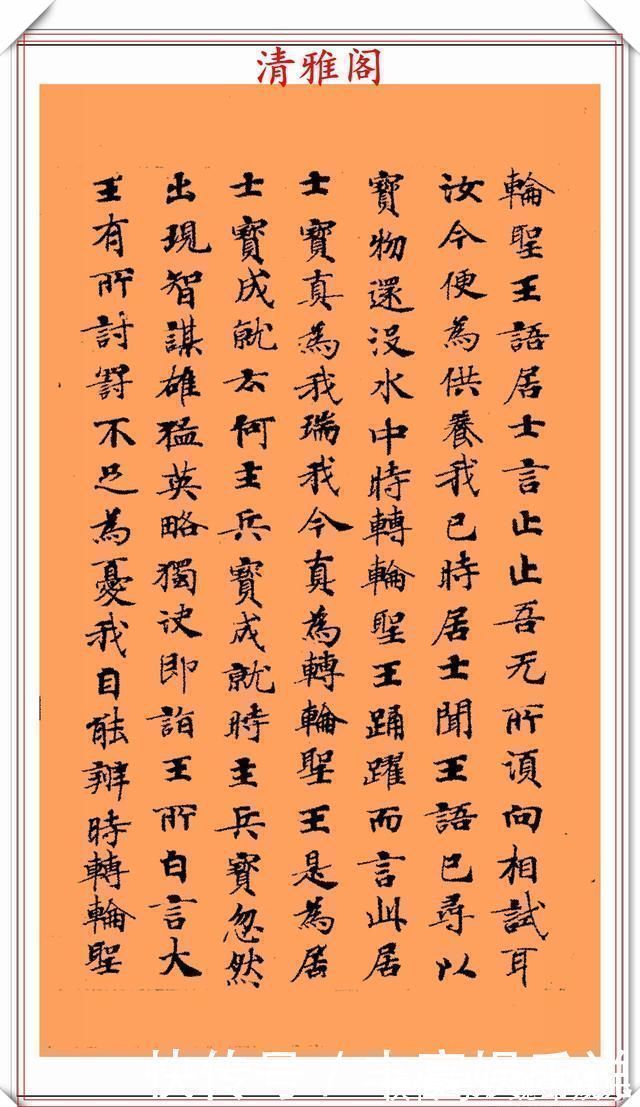 清雅阁
輪聖王語居士言止止吾无所須向相試耳
汝今便為供養我已時居士聞王語已尋以
寶物還没水中時轉輪聖王踊躍而言此居
士寶真為我瑞我今真為轉輪聖王是為居
士寶成就云何主兵寶成就時主兵寶忽然
出現智謀雄猛英略獨決即詣王所白言大
王有所討罰不足為憂我自能辦時轉輪聖